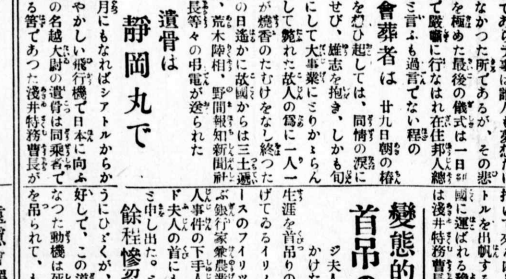 なかつた所であるが、その悲
を極めた最後の儀式は一日
で嚴肅に行なはれ在住邦人總
と言ふも過言でない程の
會葬者は 廿九日朝の椿
を想ひ起しては、同情の涙に
せび、雄志を抱き、しかも旬
にして大事業にとりかゝらん
して斃れた故人の爲に一人一
が燒香のたむけをなし終つた
の日遙かに故國からは三土遞
、荒木陸相、野間報知新聞社
長等々の弔電が送られた
遺骨は
靜岡丸で
月にもなればシアトルからか
やかしい飛行機で日本に向ふ
の名越大尉の遺骨は同乘者で
る筈であつた淺井特務曹長が
トルを出帆
國に運ばれる
は淺井特務曹長
變態的
首吊の
ジ夫人
かけ
生涯を首吊りの
げてゐるイリノ
ースのフイリツ
ぶ銀行家兼農
人事件の下手
ド夫人の首にも
と申し出た。
餘程慘忍
うにひよくが、
好して、この道
なつた動機は死
を吊られて、も